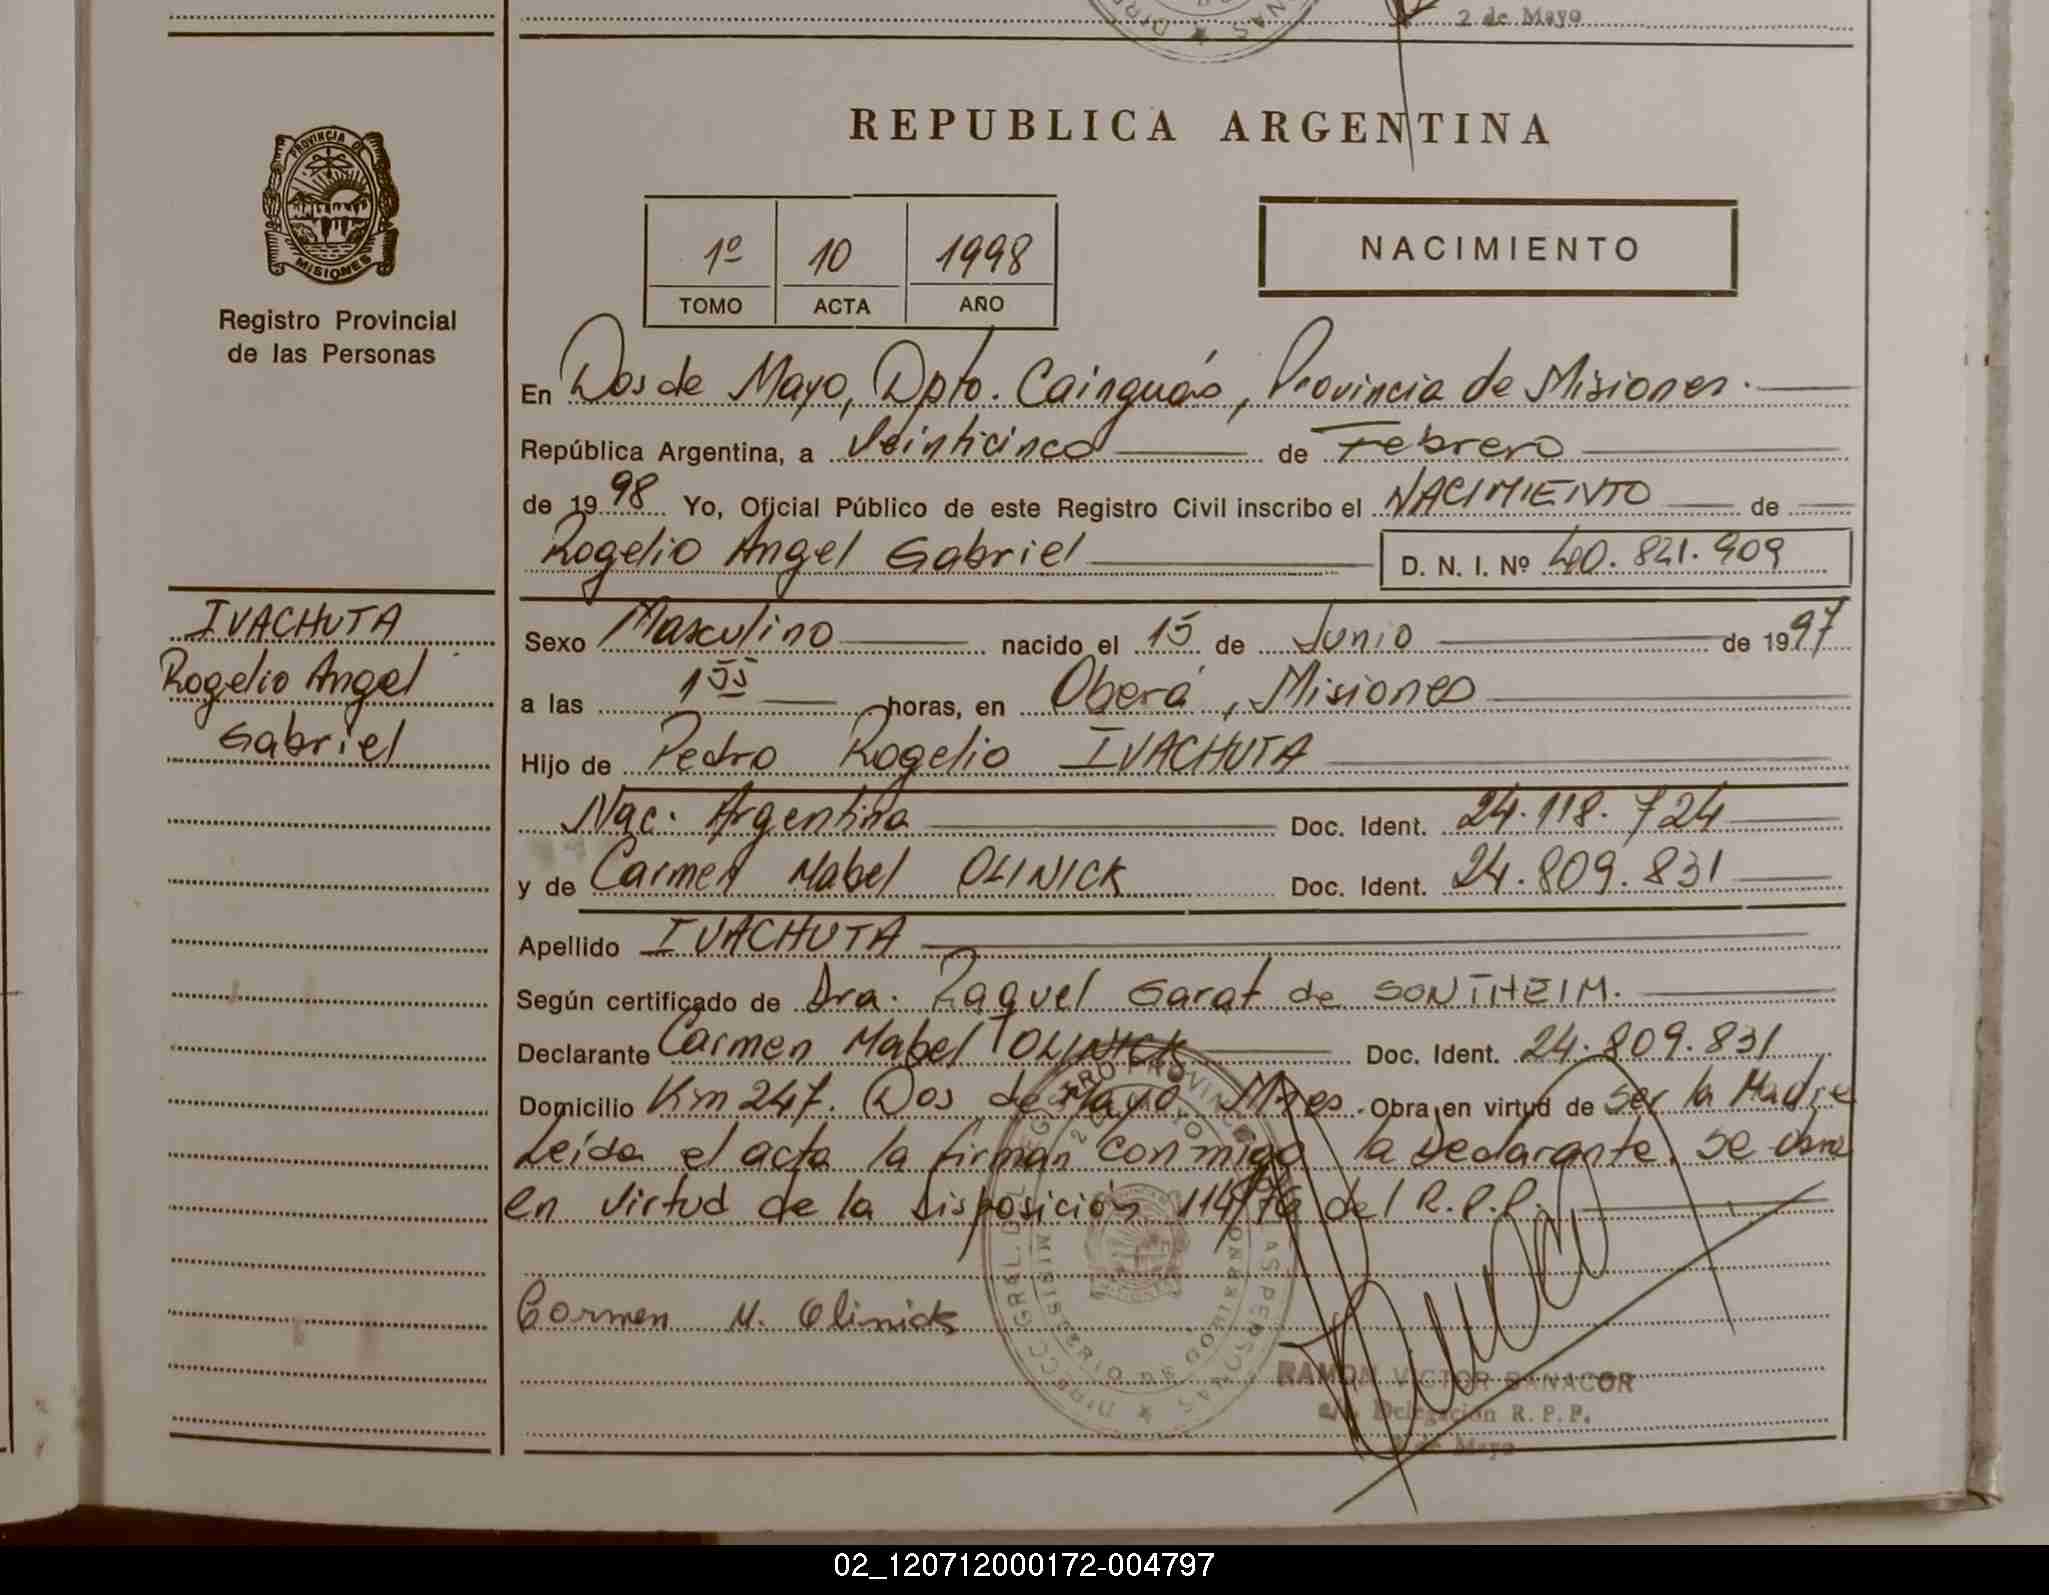 2 de Mayo
REPUBLICA ARGENTINA
PROVINCIA DE
MISIONES
Registro Provincial
de las Personas
1º 10 1998
TOMO ACTA AÑO
NACIMIENTO
En Dos de Mayo, Dpto. Cainguás, Provincia de Misiones.
República Argentina, a Veinticinco de Febrero
de 1998 Yo, Oficial Público de este Registro Civil inscribo el NACIMIENTO de
Rogelio Angel Gabriel D. N. I. Nº 40.821.909
IVACHUTA
Rogelio Angel
Gabriel
Sexo Masculino nacido el 15 de Junio de 1997
a las 1 55 horas, en Oberá, Misiones
Hijo de Pedro Rogelio IVACHUTA
Nac. Argentina Doc. Ident. 24.118.724
y de Carmen Mabel OLINICK Doc. Ident. 24.809.831
Apellido IVACHUTA
Según certificado de Dra. Raquel Garat de SONTHEIM.
Declarante Carmen Mabel OLINICK Doc. Ident. 24.809.831
Domicilio Km 247. Dos de Mayo Mnes. Obra en virtud de Ser la Madre
Leída el acta la firman conmigo la declarante. Se
en virtud de la Disposición 114/76 del R.P.P.
Carmen M. Olinick
RAMON VICTOR BANACOR
Delegación R. P. P.
de Mayo
02_120712000172-004797